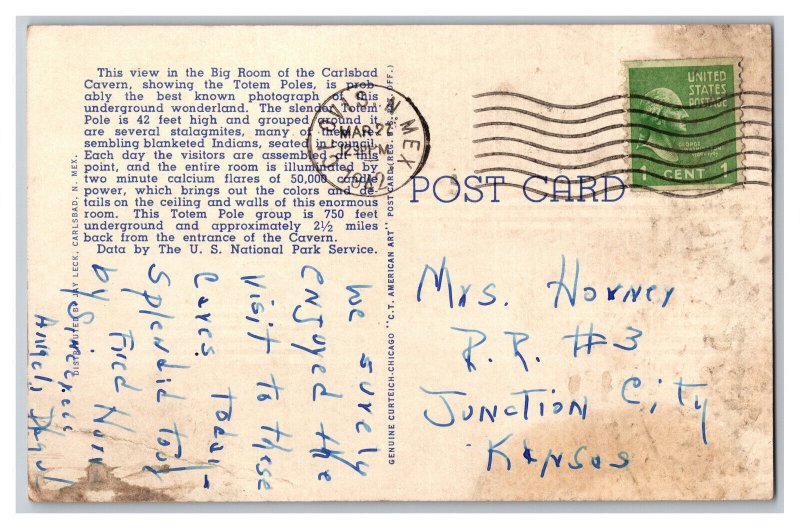 This view in the Big Room of the Carlsbad
Cavern, showing the Totem Poles, is prob-
ably the best known photograph of this
underground wonderland. The slender Totem
Pole is 42 feet high and grouped around it
are several stalagmites, many of them re-
sembling blanketed Indians, seated in council.
Each day the visitors are assembled at this
point, and the entire room is illuminated by
two minute calcium flares of 50,000 candle
power, which brings out the colors and de-
tails on the ceiling and walls of this enormous
room. This Totem Pole group is 750 feet
underground and approximately 2½ miles
back from the entrance of the Cavern.
Data by The U. S. National Park Service.
DISTRIBUTED BY JAY LECK, CARLSBAD, N. MEX.
We surely
enjoyed the
visit to these
caves. Today—
Splendid too
Fred
by
GENUINE CURTEICH-CHICAGO "C.T. AMERICAN ART" POST CARD (REG. U.S. PAT. OFF.)
CLOVIS, N MEX
MAR 22
12 PM
UNITED
STATES
POSTAGE
GEORGE
WASHINGTON
1 CENT 1
POST CARD
Mrs. Horney
R.R. #3
Junction City
Kansas